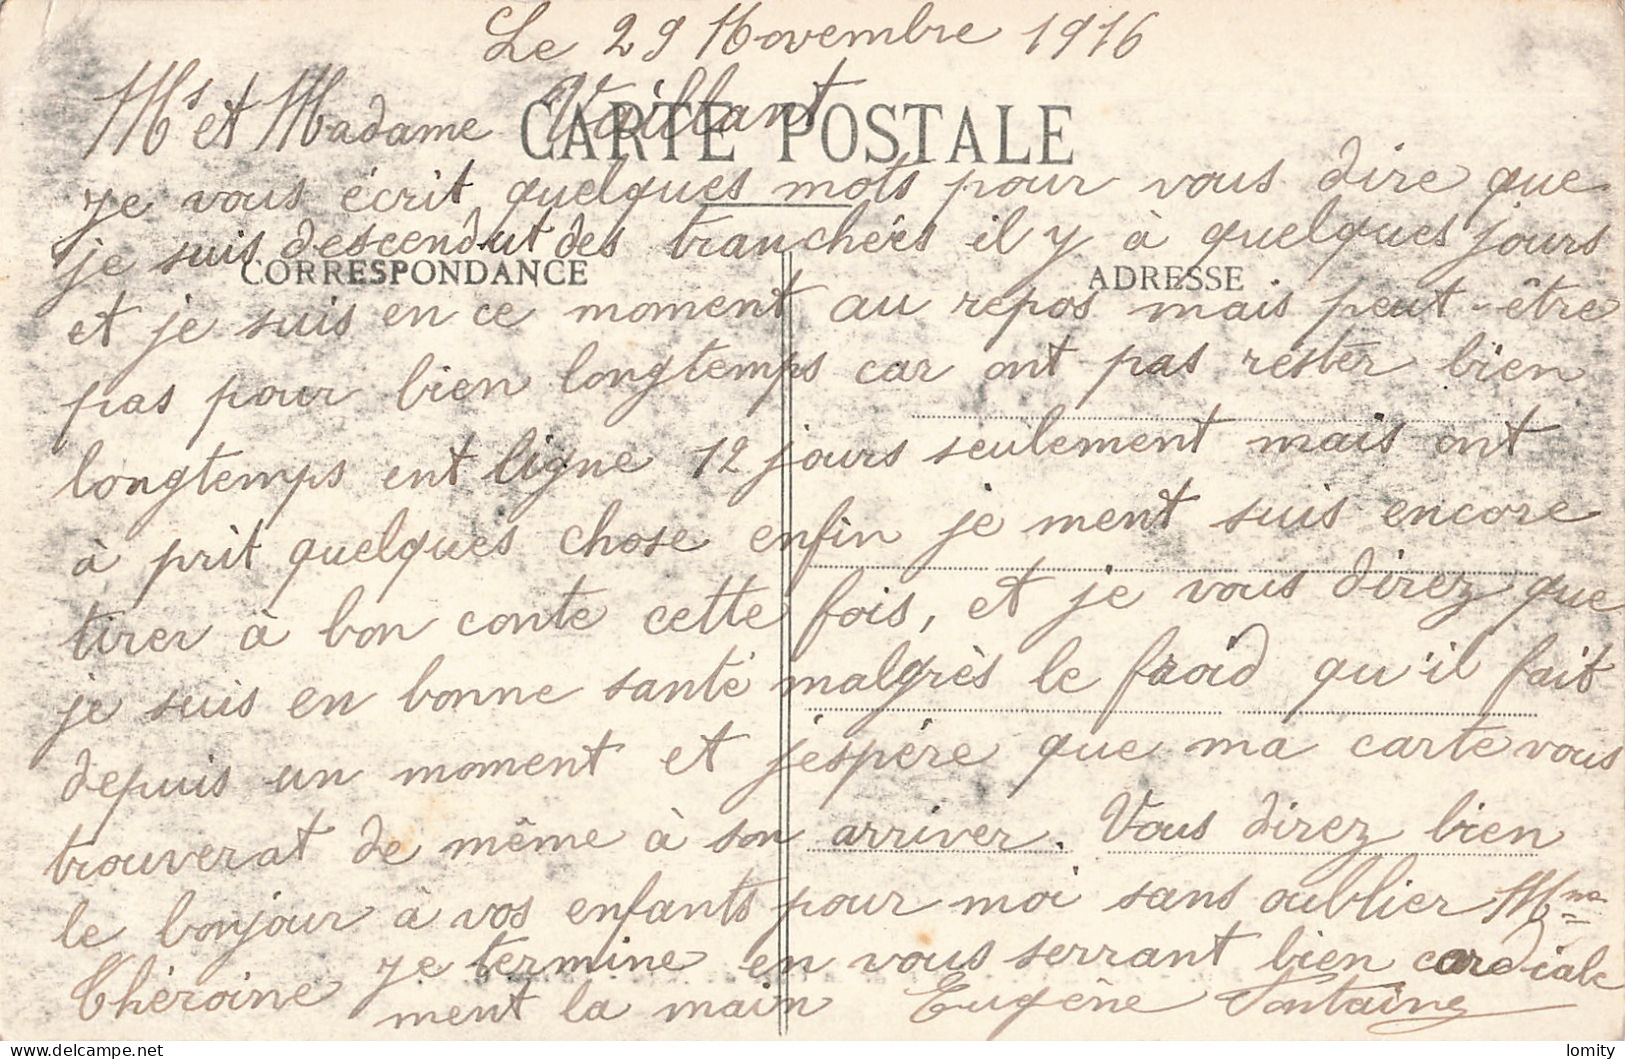 Le 29 Novembre 1916
Ms et Madame Vaillant
CARTE POSTALE
je vous écrit quelques mots pour vous dire que
je suis descendut des tranchées il y à quelques jours
CORRESPONDANCE ADRESSE
et je suis en ce moment au repos mais peut-être
pas pour bien longtemps car ont pas rester bien
longtemps ent ligne 12 jours seulement mais ont
à prit quelques chose enfin je ment suis encore
tirer à bon conte cette fois, et je vous direz que
je suis en bonne santé malgrès le froid qu'il fait
depuis un moment et j'espère que ma carte vous
trouverat de même à son arriver. Vous direz bien
le bonjour à vos enfants pour moi sans oublier Mme
Chéroine je termine en vous serrant bien cordiale
ment la main Eugène Fontaine
lomity